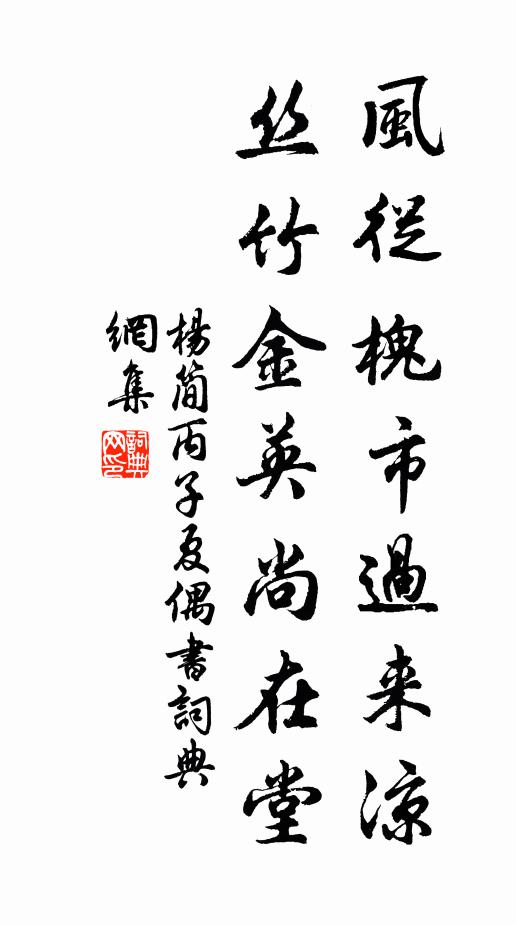 風從槐市過来涼
丝竹金英尚在堂
楊簡丙子夏偶書詞典
網集
詞典網印